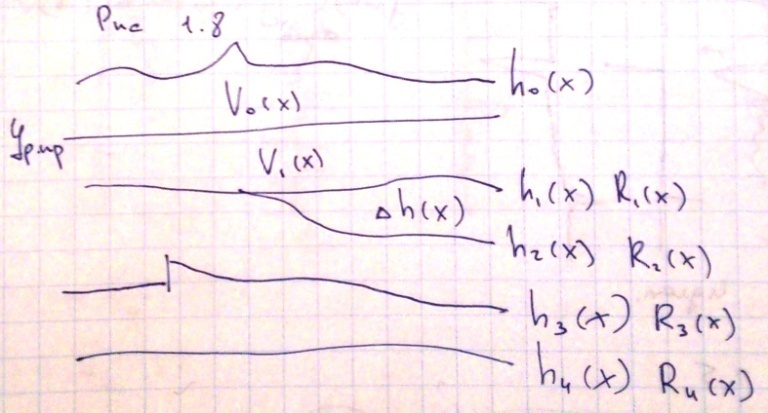 Рис 1.8
h₀(x)
V₀(x)
Yр.пр
V₁(x)
h₁(x) R₁(x)
Δh(x)
h₂(x) R₂(x)
h₃(x) R₃(x)
h₄(x) R₄(x)